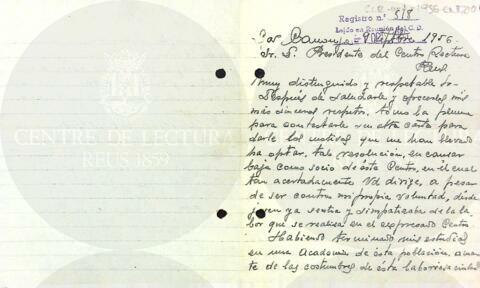 Registro n.º 518
Leído en Reunión del C.D.
1956.
Sr. D. Presidente del Centro Lectura
Reus
Muy distinguido y respetable Sr.
Después de saludarle y ofrecerle mis
más sinceros respetos, tomo la pluma
para contestarle su atta carta para
darle los motivos que me han llevado
ha optar, tal resolución, en causar
baja como socio de éste Centro, en el cual
tan acertadamente Vd dirige, a pesar
de ser contra mi propia voluntad, desde
joven ya sentía y simpatizaba de la la-
bor que se realiza en el expresado Centro
Habiendo terminado mis estudios
en una Academia de ésta población, aman-
te de las costumbres de ésta laboriosa ciudad
CENTRE DE LECTURA
REUS 1859